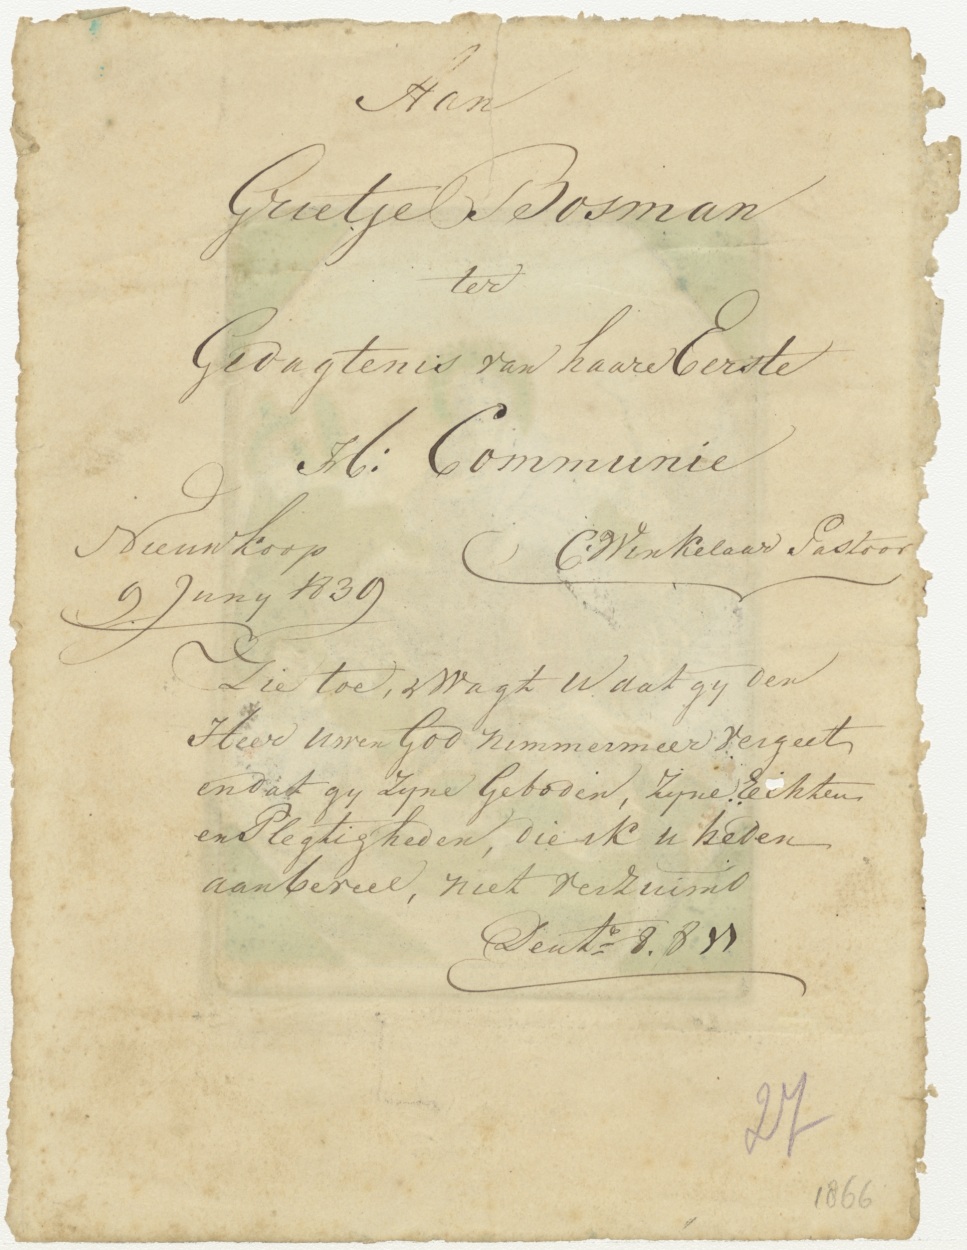 Aan
Grietje Bosman
ter
Gedagtenis van haare Eerste
H: Communie
Nieuwkoop
9 Juny 1839
C. Winkelaar Pastoor
Zie toe, & Wagt U dat gy den
Heer uwen God nimmermeer vergeet
en dat gy Zyne Geboden, Zyne Regten
en Plegtigheden, die ik u heden
aanbeveel, niet verzuimd
Deut. 8. 8 11
27
1866